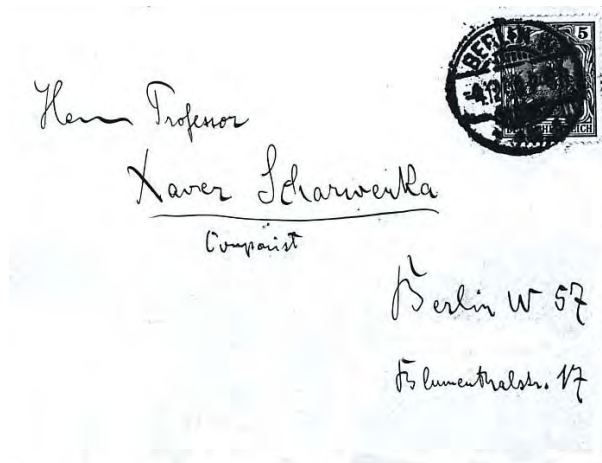 BERLIN
5
Herrn Professor
Xaver Scharwenka
Componist
Berlin W 57
Blumenthalstr. 17